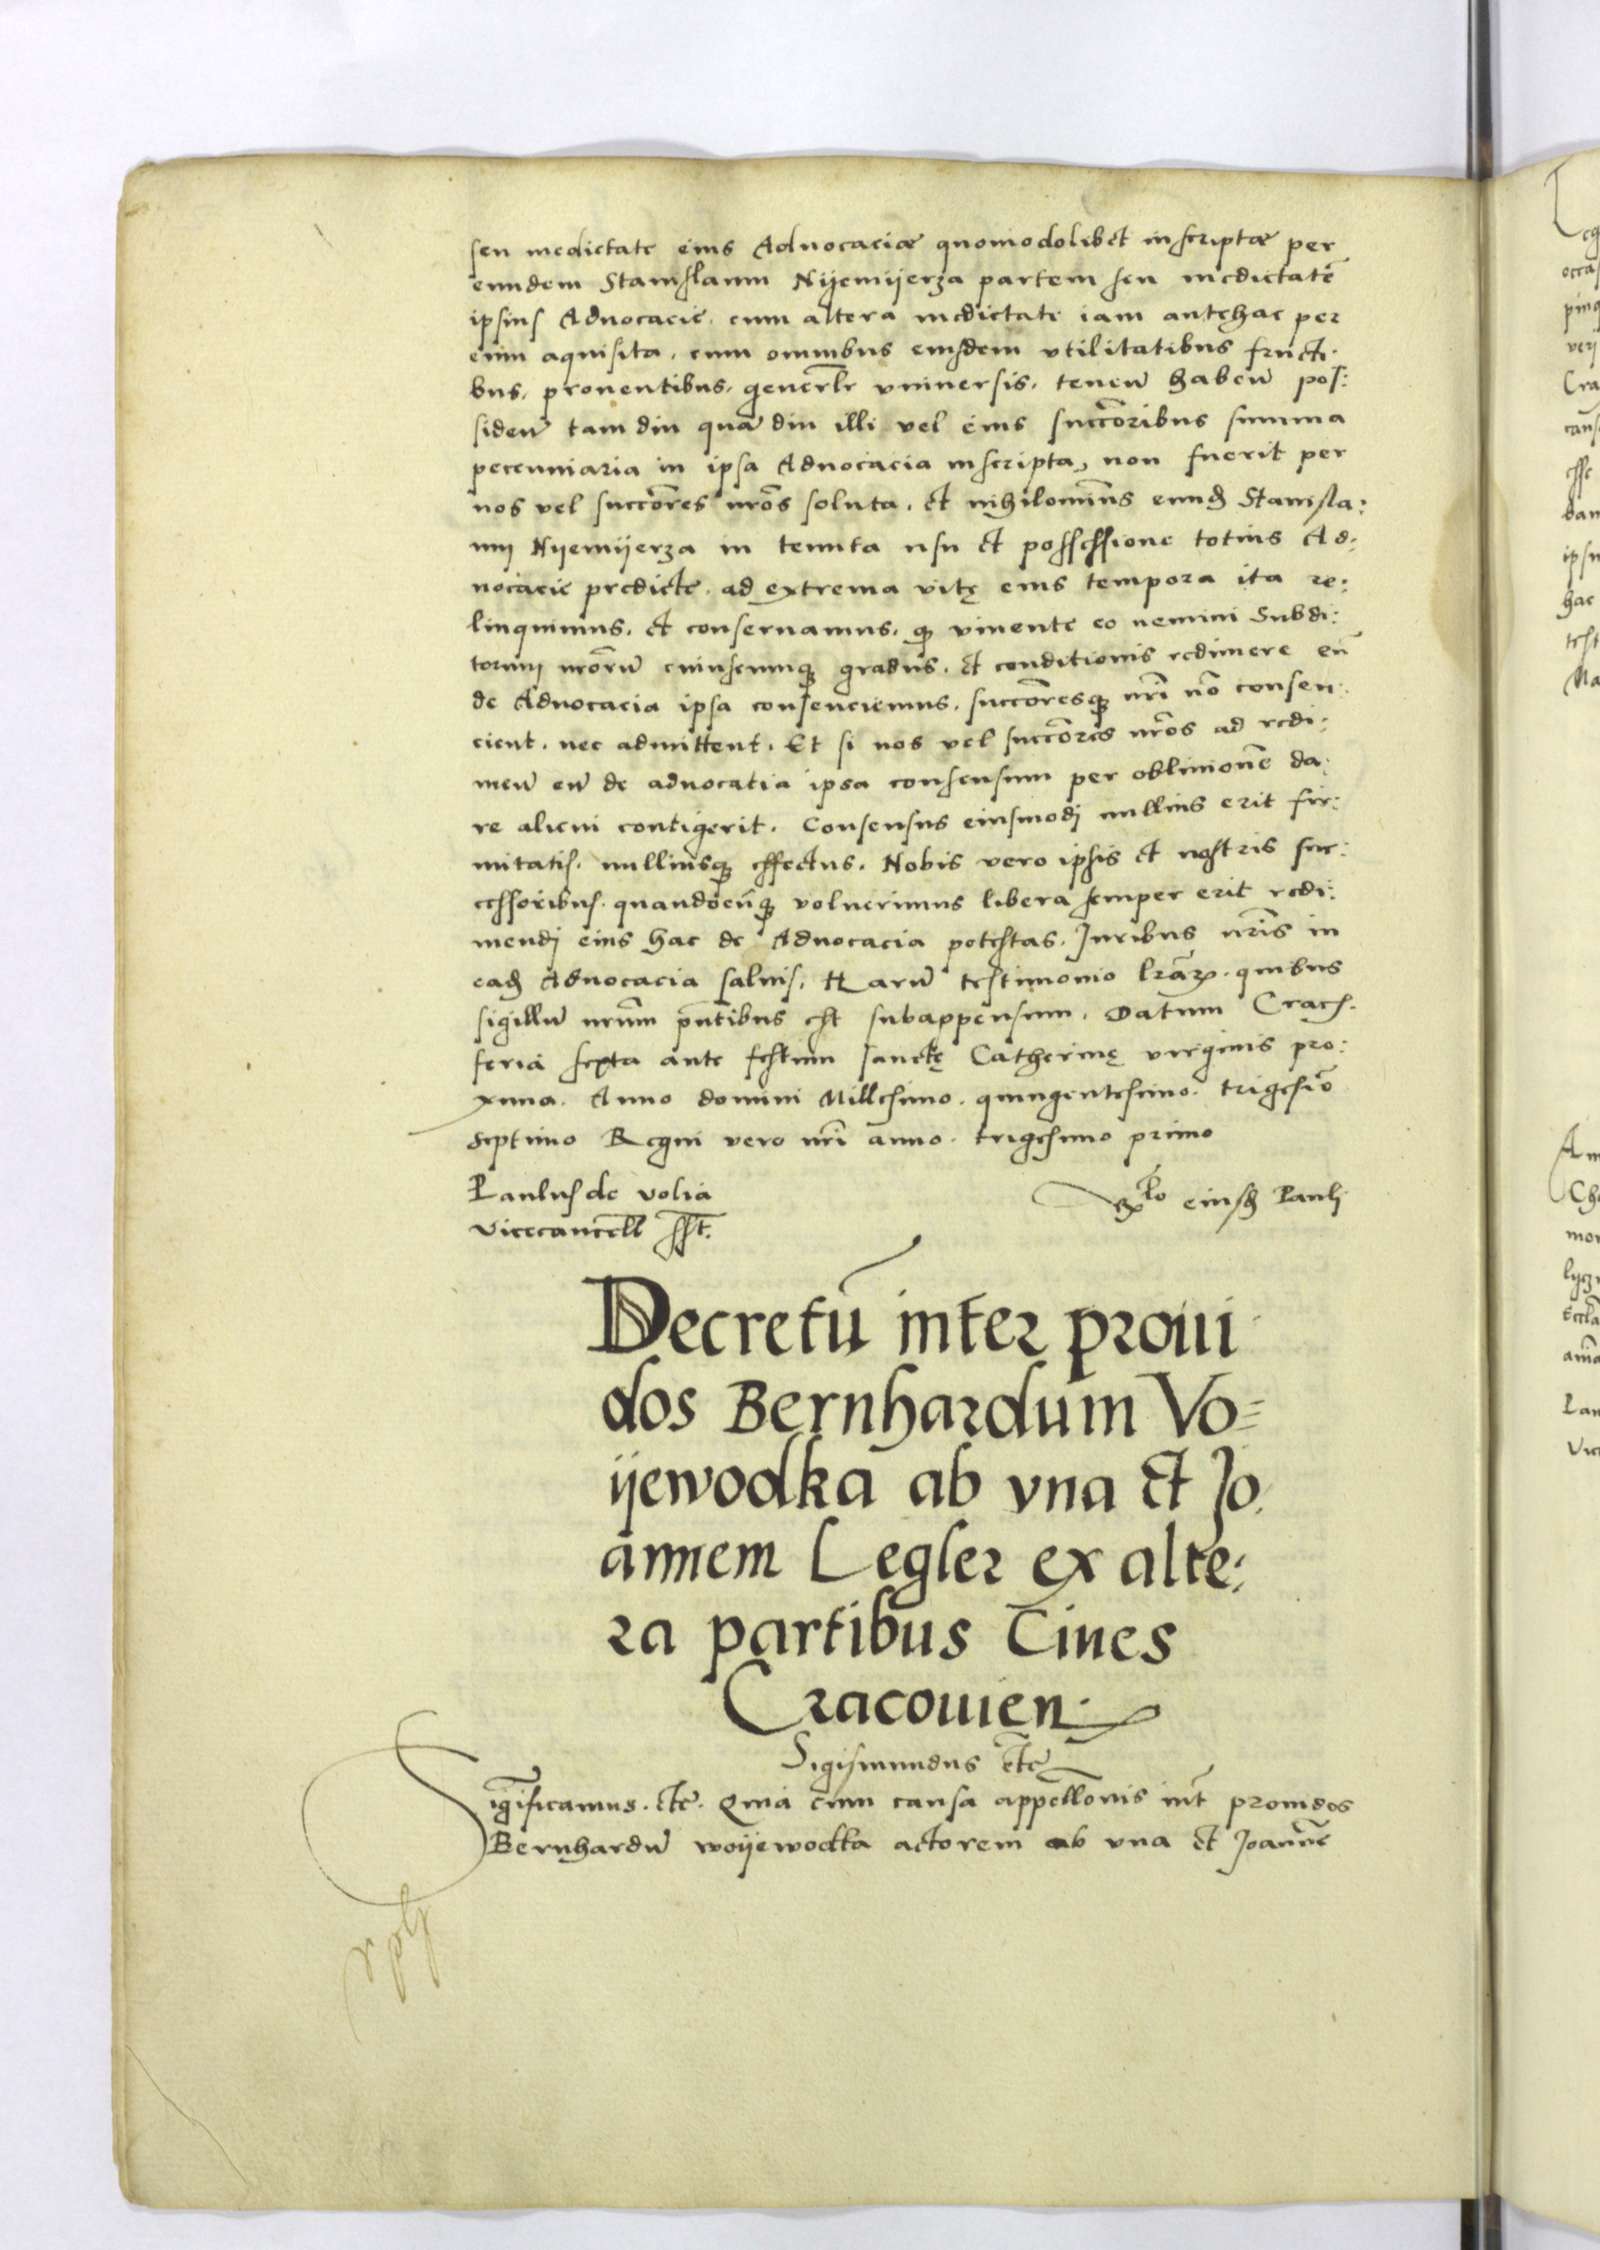 seu medietate eius Aduocaciæ quomodolibet inscriptæ per
eundem Stanislaum Nyemyerza partem seu medietatē
ipsius Aduocacie. cum altera medietate iam antehac per
eum aquisita. cum omnibus eiusdem vtilitatibus fructi
bus. prouentibus. generlr vniuersis. teneñ habeñ pos:
sideñ tam diu qua diu illi vel eius succōribus summa
pecunniaria in ipsa Aduocacia inscripta, non fuerit per
nos vel succōres nrōs soluta. et nihilomiñs eund Stanisla:
um Nyemyerza in tenuta usu et possessione totius Ad:
uocacie predicte. ad extrema vitę eius tempora ita re:
linquimus. et conseruamus. q viuente eo nemini Subdi:
torum nrōrū cuiuscunq gradus. et conditionis redimere eū
de Aduocacia ipsa consenciemus. succōresq nrī nō consen:
cient. nec admittent. Et si nos vel succōres nrōs ad redi:
meñ eū de aduocatia ipsa consensum per obliuionē da:
re alicui contigerit. Consensus eiusmodj nullius erit fir:
mitatis. nulliusq effectus. Nobis vero ipsis et nostris suc:
cessoribus. quandocūq voluerimus libera semper erit redi:
mendj eius hac de Aduocacia potestas. Juribus nrīs in
ead Aduocacia saluis. Harū testimonio lrāꝝ. quibus
sigillū nrūm pñtibus est subappensum. Datum Crach.
feria sexta ante festum sanctę Catherinę virginis pro:
xima. Anno domini Millesimo. quingentesimo. trigesiō
septimo Regni vero nrī anno. trigesimo primo
Paulus de volia
Vicecancell sst.
Rlo eiusd Paulj
Decretū inter proui
dos Bernhardum Vo=
ijewodka ab vna et Jo
annem Legler ex alte:
ra partibus Ciues
Cracouien.
Sigismundus etc
Significamus. etc. Quia cum causa appellōnis int prouidos
Bernhardū woyewodka actorem ab vna et Joannē